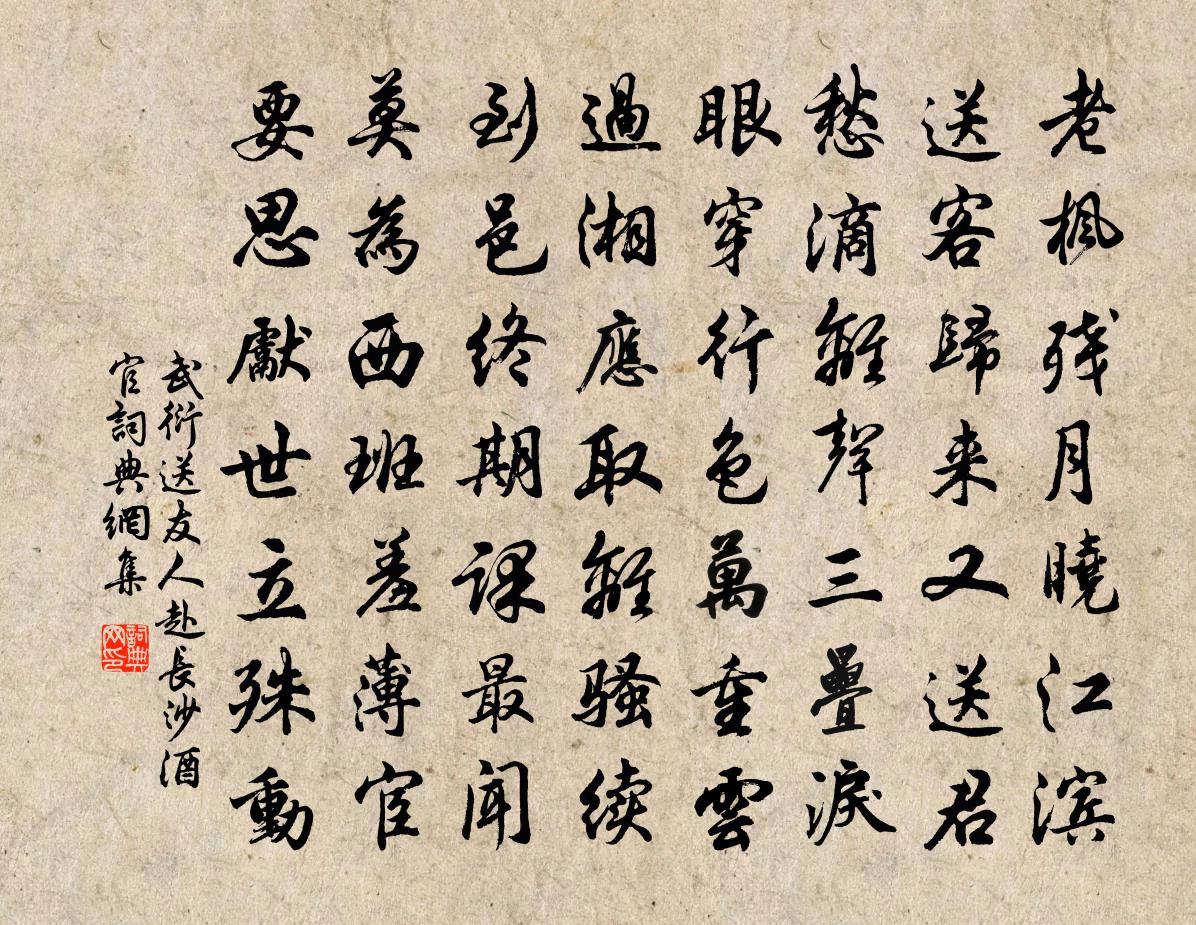 老楓残月曉江滨
送客歸来又送君
愁滴離聲三疊淚
眼穿行色萬重雲
過湘應取離騷续
到邑终期課最聞
莫為西班羞薄宦
要思獻世立殊勳
武衍送友人赴長沙酒
官詞典網集
詞典
网印